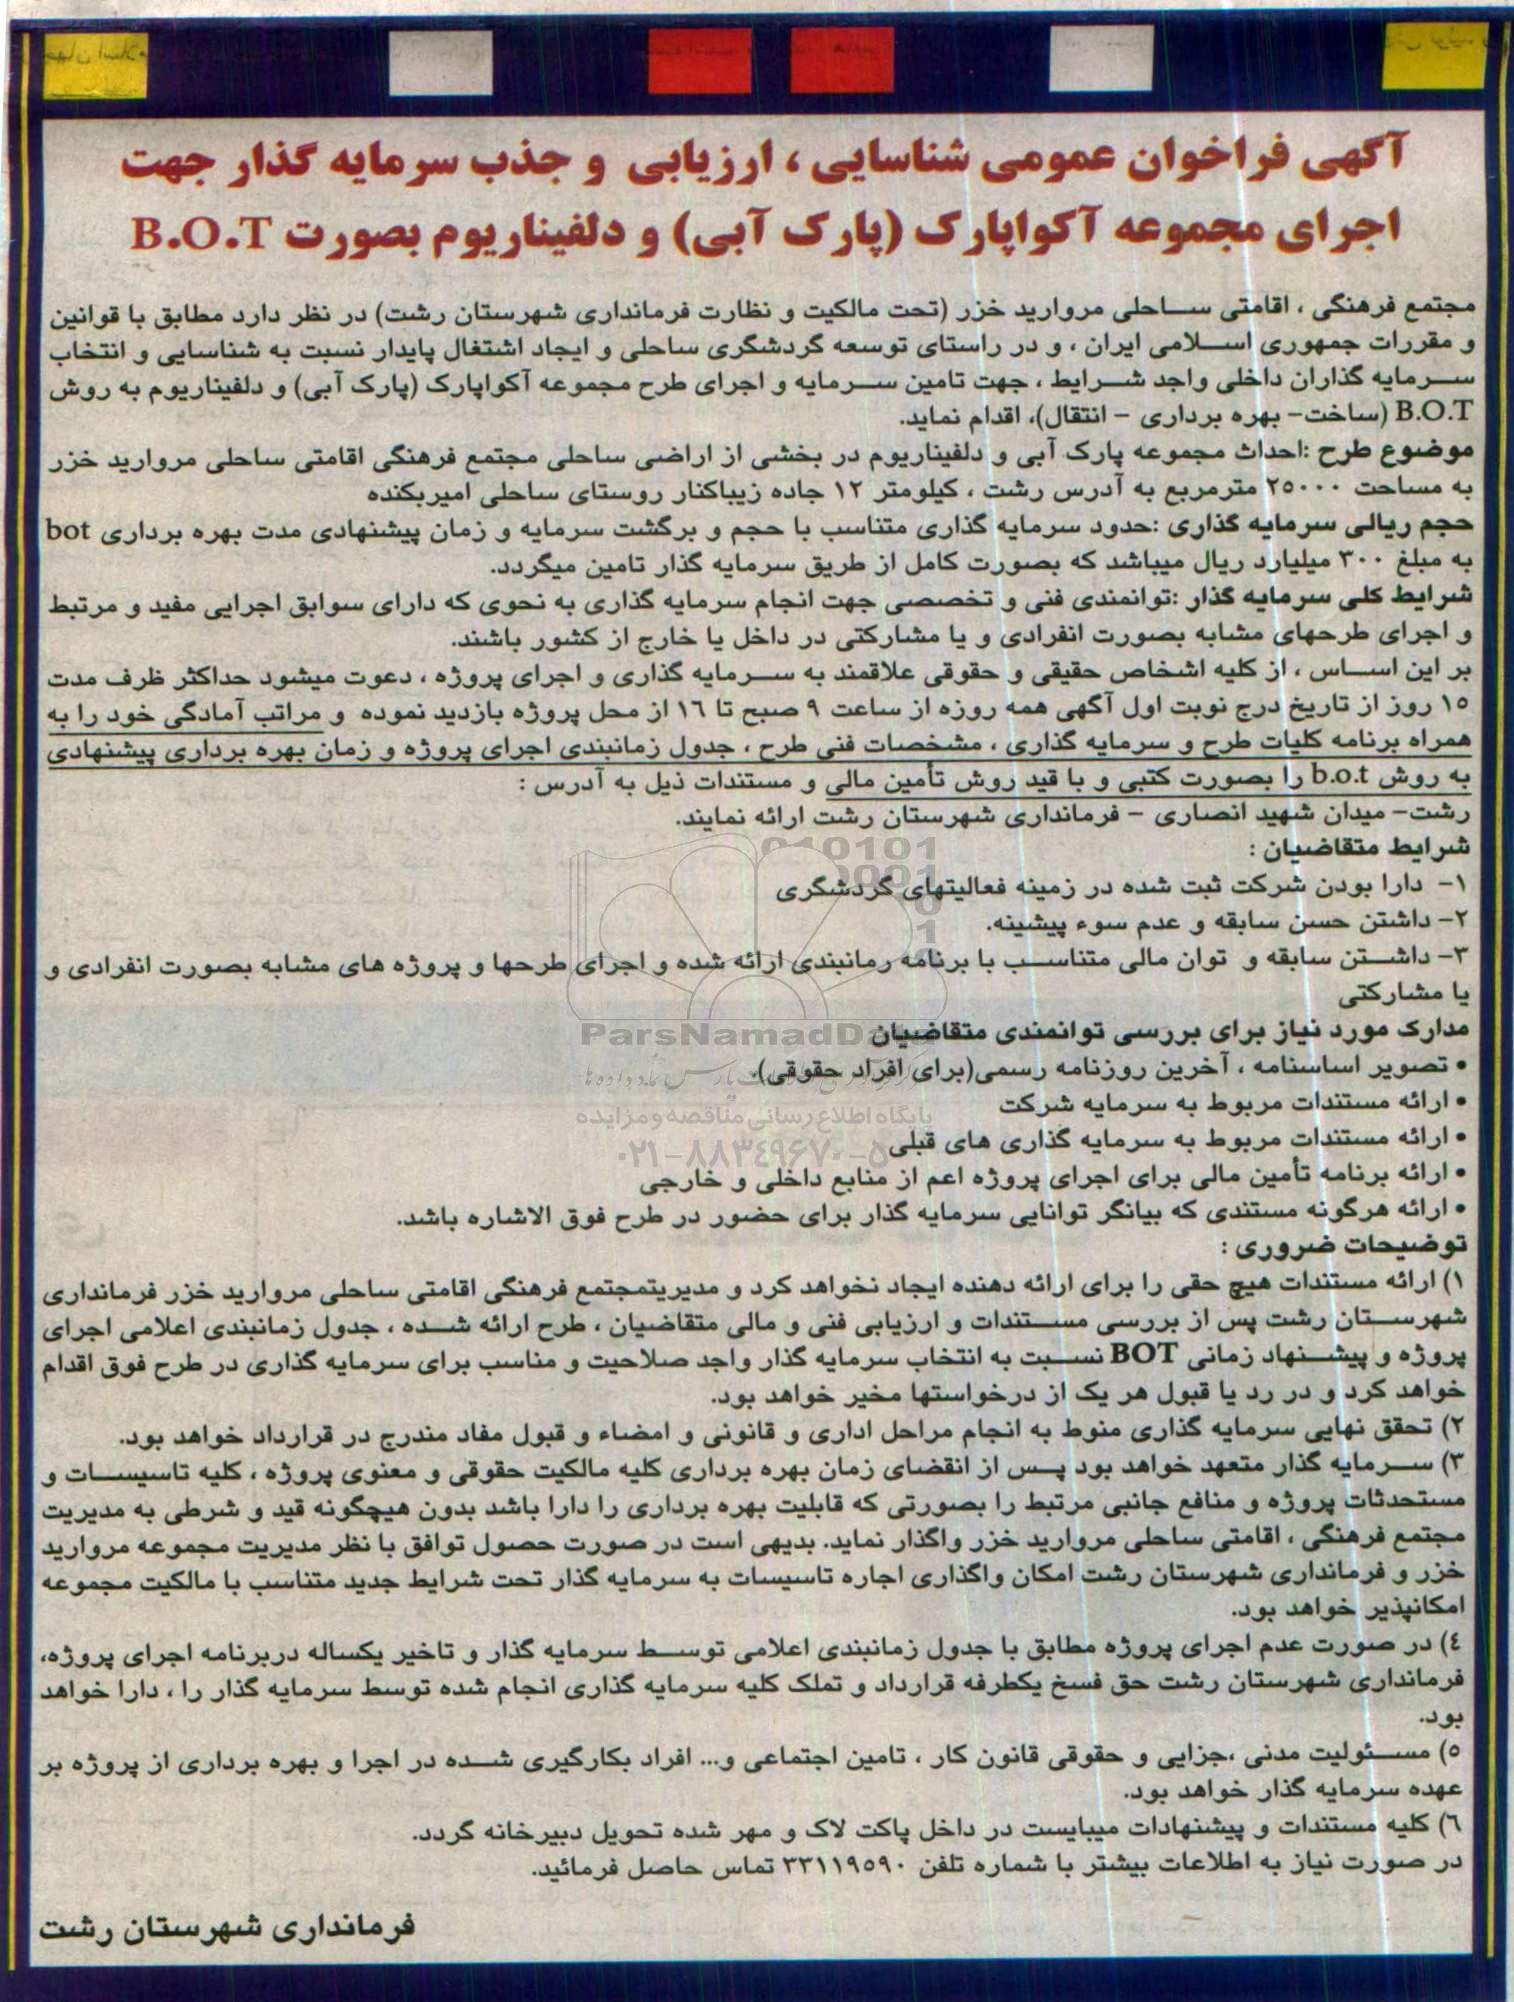 آگهی فراخوان عمومی شناسایی ، ارزیابی و جذب سرمایه گذار جهت
اجرای مجموعه آکواپارک (پارک آبی) و دلفیناریوم بصورت B.O.T
مجتمع فرهنگی ، اقامتی ساحلی مروارید خزر (تحت مالکیت و نظارت فرمانداری شهرستان رشت) در نظر دارد مطابق با قوانین
و مقررات جمهوری اسلامی ایران ، و در راستای توسعه گردشگری ساحلی و ایجاد اشتغال پایدار نسبت به شناسایی و انتخاب
سرمایه گذاران داخلی واجد شرایط ، جهت تامین سرمایه و اجرای طرح مجموعه آکواپارک (پارک آبی) و دلفیناریوم به روش
B.O.T (ساخت- بهره برداری - انتقال)، اقدام نماید.
موضوع طرح :احداث مجموعه پارک آبی و دلفیناریوم در بخشی از اراضی ساحلی مجتمع فرهنگی اقامتی ساحلی مروارید خزر
به مساحت ۲۵۰۰۰ مترمربع به آدرس رشت ، کیلومتر ۱۲ جاده زیباکنار روستای ساحلی امیربکنده
حجم ریالی سرمایه گذاری :حدود سرمایه گذاری متناسب با حجم و برگشت سرمایه و زمان پیشنهادی مدت بهره برداری bot
به مبلغ ۳۰۰ میلیارد ریال میباشد که بصورت کامل از طریق سرمایه گذار تامین میگردد.
شرایط کلی سرمایه گذار :توانمندی فنی و تخصصی جهت انجام سرمایه گذاری به نحوی که دارای سوابق اجرایی مفید و مرتبط
و اجرای طرحهای مشابه بصورت انفرادی و یا مشارکتی در داخل یا خارج از کشور باشند.
بر این اساس ، از کلیه اشخاص حقیقی و حقوقی علاقمند به سرمایه گذاری و اجرای پروژه ، دعوت میشود حداکثر ظرف مدت
۱۵ روز از تاریخ درج نوبت اول آگهی همه روزه از ساعت ۹ صبح تا ۱۶ از محل پروژه بازدید نموده و مراتب آمادگی خود را به
همراه برنامه کلیات طرح و سرمایه گذاری ، مشخصات فنی طرح ، جدول زمانبندی اجرای پروژه و زمان بهره برداری پیشنهادی
به روش b.o.t را بصورت کتبی و با قید روش تأمین مالی و مستندات ذیل به آدرس :
رشت- میدان شهید انصاری - فرمانداری شهرستان رشت ارائه نمایند.
شرایط متقاضیان :
۱- دارا بودن شرکت ثبت شده در زمینه فعالیتهای گردشگری
۲- داشتن حسن سابقه و عدم سوء پیشینه.
۳- داشتن سابقه و توان مالی متناسب با برنامه زمانبندی ارائه شده و اجرای طرحها و پروژه های مشابه بصورت انفرادی و
یا مشارکتی
مدارک مورد نیاز برای بررسی توانمندی متقاضیان
• تصویر اساسنامه ، آخرین روزنامه رسمی(برای افراد حقوقی).
• ارائه مستندات مربوط به سرمایه شرکت
• ارائه مستندات مربوط به سرمایه گذاری های قبلی
• ارائه برنامه تأمین مالی برای اجرای پروژه اعم از منابع داخلی و خارجی
• ارائه هرگونه مستندی که بیانگر توانایی سرمایه گذار برای حضور در طرح فوق الاشاره باشد.
توضیحات ضروری :
۱) ارائه مستندات هیچ حقی را برای ارائه دهنده ایجاد نخواهد کرد و مدیریتمجتمع فرهنگی اقامتی ساحلی مروارید خزر فرمانداری
شهرستان رشت پس از بررسی مستندات و ارزیابی فنی و مالی متقاضیان ، طرح ارائه شده ، جدول زمانبندی اعلامی اجرای
پروژه و پیشنهاد زمانی BOT نسبت به انتخاب سرمایه گذار واجد صلاحیت و مناسب برای سرمایه گذاری در طرح فوق اقدام
خواهد کرد و در رد یا قبول هر یک از درخواستها مخیر خواهد بود.
۲) تحقق نهایی سرمایه گذاری منوط به انجام مراحل اداری و قانونی و امضاء و قبول مفاد مندرج در قرارداد خواهد بود.
۳) سرمایه گذار متعهد خواهد بود پس از انقضای زمان بهره برداری کلیه مالکیت حقوقی و معنوی پروژه ، کلیه تاسیسات و
مستحدثات پروژه و منافع جانبی مرتبط را بصورتی که قابلیت بهره برداری را دارا باشد بدون هیچگونه قید و شرطی به مدیریت
مجتمع فرهنگی ، اقامتی ساحلی مروارید خزر واگذار نماید. بدیهی است در صورت حصول توافق با نظر مدیریت مجموعه مروارید
خزر و فرمانداری شهرستان رشت امکان واگذاری اجاره تاسیسات به سرمایه گذار تحت شرایط جدید متناسب با مالکیت مجموعه
امکانپذیر خواهد بود.
۴) در صورت عدم اجرای پروژه مطابق با جدول زمانبندی اعلامی توسط سرمایه گذار و تاخیر یکساله دربرنامه اجرای پروژه،
فرمانداری شهرستان رشت حق فسخ یکطرفه قرارداد و تملک کلیه سرمایه گذاری انجام شده توسط سرمایه گذار را ، دارا خواهد
بود.
۵) مسئولیت مدنی ،جزایی و حقوقی قانون کار ، تامین اجتماعی و... افراد بکارگیری شده در اجرا و بهره برداری از پروژه بر
عهده سرمایه گذار خواهد بود.
۶) کلیه مستندات و پیشنهادات میبایست در داخل پاکت لاک و مهر شده تحویل دبیرخانه گردد.
در صورت نیاز به اطلاعات بیشتر با شماره تلفن ۳۳۱۱۹۵۹۰ تماس حاصل فرمائید.
فرمانداری شهرستان رشت
ParsNamadData
پایگاه اطلاع رسانی مناقصه و مزایده
۰۲۱-۸۸۳۴۹۶۷۰-۵